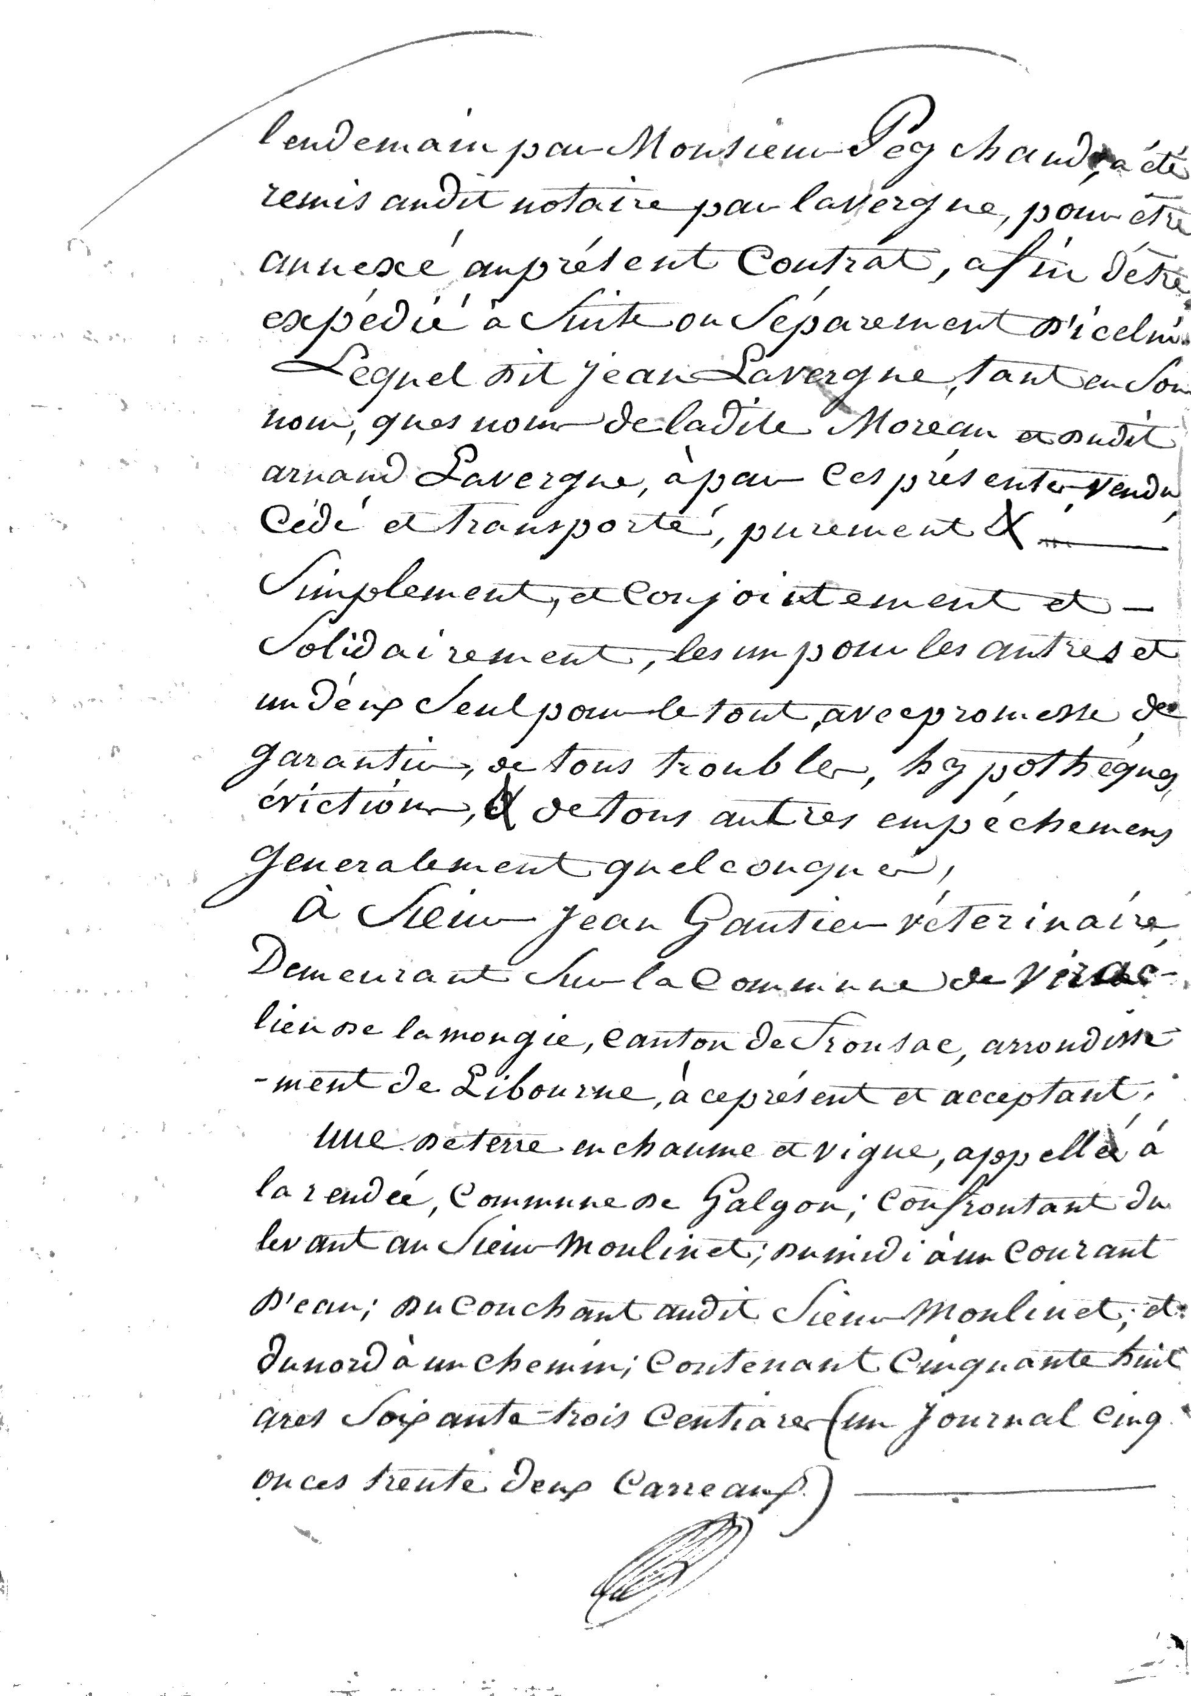 lendemain par Monsieur Pegchaud, a été
remis audit notaire par lavergne, pour être
annexé au présent Contrat, afin d'être
expédié à Suite ou Séparement d'icelui.
Lequel dit jean Lavergne, tant en Son
nom, qu'es nom de ladite Moreau et dudit
arnaud Lavergne, à par Ces présentes vendu,
Cédé et transporté, purement &
Simplement, et Conjointement et —
Solidairement, les un pour les autres et
un d'éux Seul pour le tout, avec promesse de
garantie, de tous troubles, hypothéques,
évictions, & de tous autres empéchemens
generalement quelconques,
À Sieur Jean Gautier véterinaire,
Demeurant Sur la Commune de Virac-
lieu de la mongie, Canton de Fronsac, arrondisse
-ment de Libourne, à ce présent et acceptant;
une de terre en chaume et vigne, appellée à
la rendée, Commune de Galgon; Confrontant du
levant au Sieur Moulinet; du midi à un Courant
d'eau; du Couchant audit Sieur Moulinet; et
du nord à un chemin; Contenant Cinquante huit
ares Soixante-trois Centiares (un Journal cinq
onces trente deux Carreaux.)